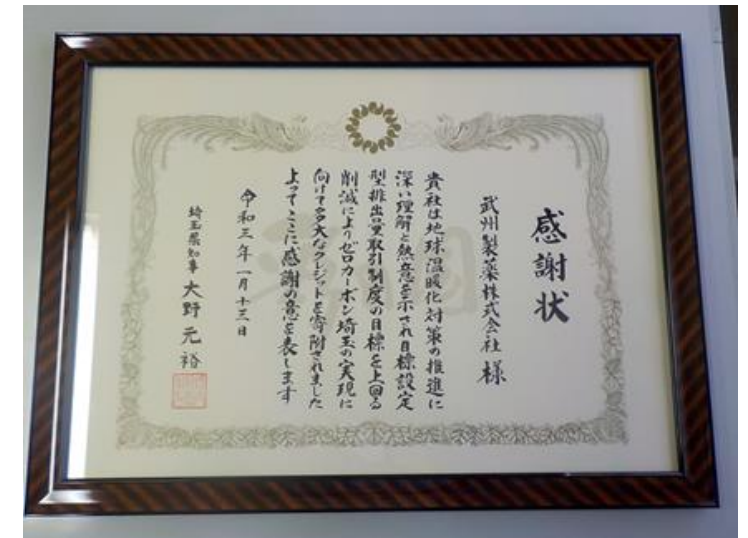 感謝状
武州製薬株式会社 様
貴社は地球温暖化対策の推進に
深い理解と熱意を示され目標設定
型排出量取引制度の目標を上回る
削減によりゼロカーボン埼玉の実現に
向けて多大なクレジットを寄附されました
よってここに感謝の意を表します
令和三年一月十三日
埼玉県知事 大野元裕